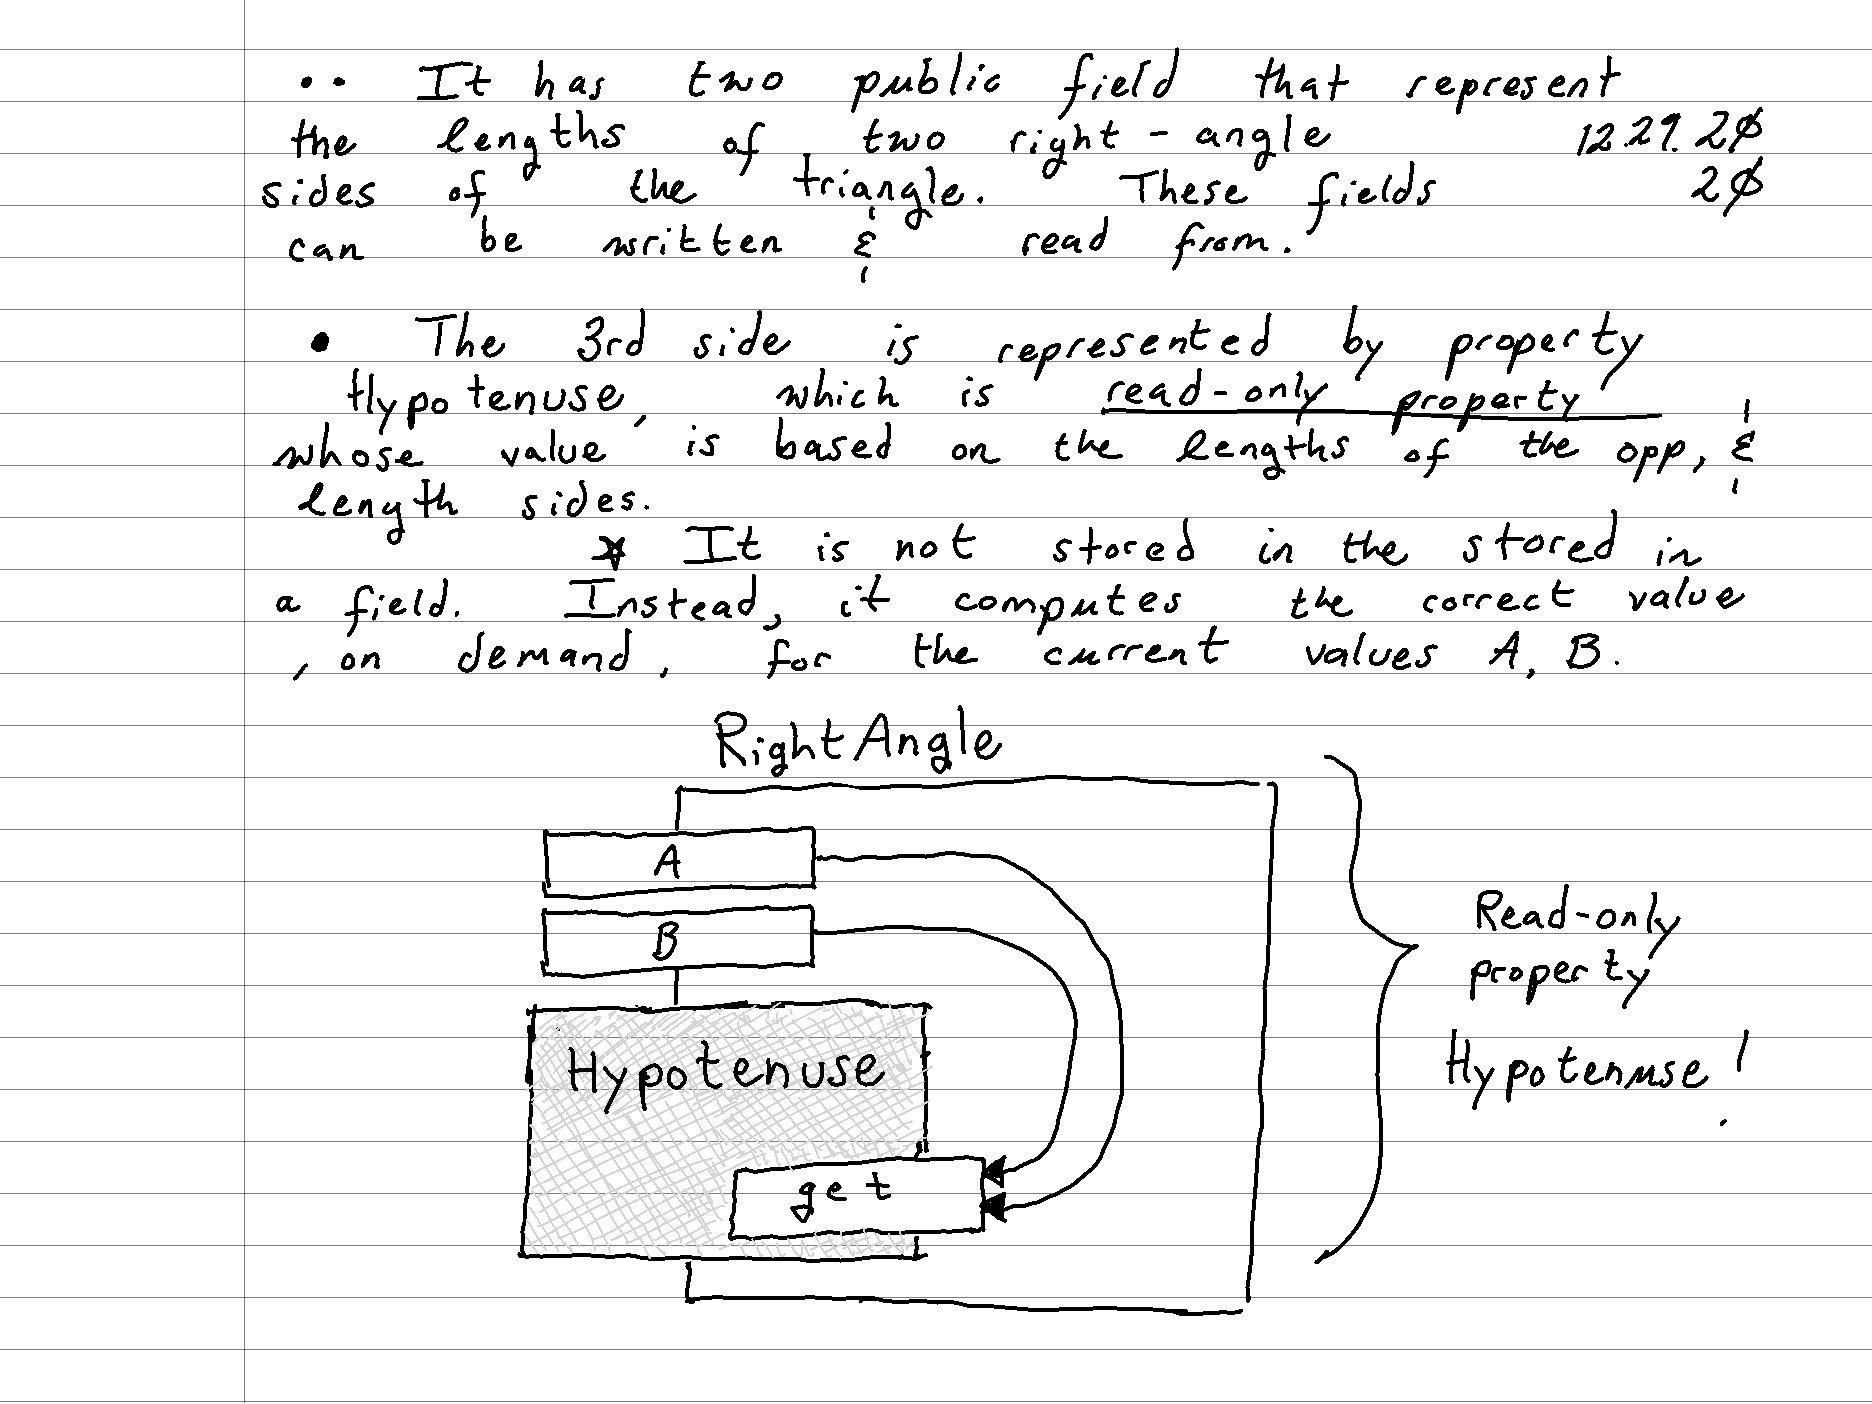 •• It has two public field that represent
the lengths of two right-angle 12.29.2∅
sides of the triangle. These fields 2∅
can be written & read from.
• The 3rd side is represented by property
Hypotenuse, which is read-only property
whose value is based on the lengths of the opp, &
length sides.
★ It is not stored in the stored in
a field. Instead, it computes the correct value
, on demand, for the current values A, B.
RightAngle
A
B
Hypotenuse
get
Read-only
property
Hypotenuse!